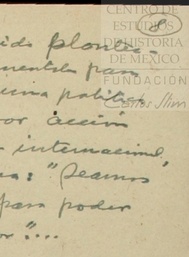 CENTRO DE
ESTUDIOS
DE HISTORIA
DE MEXICO
FUNDACIÓN
Carlos Slim
8
ido plantea-
para
una política
por acción
internacional,
: "Seamos
para poder
or"...